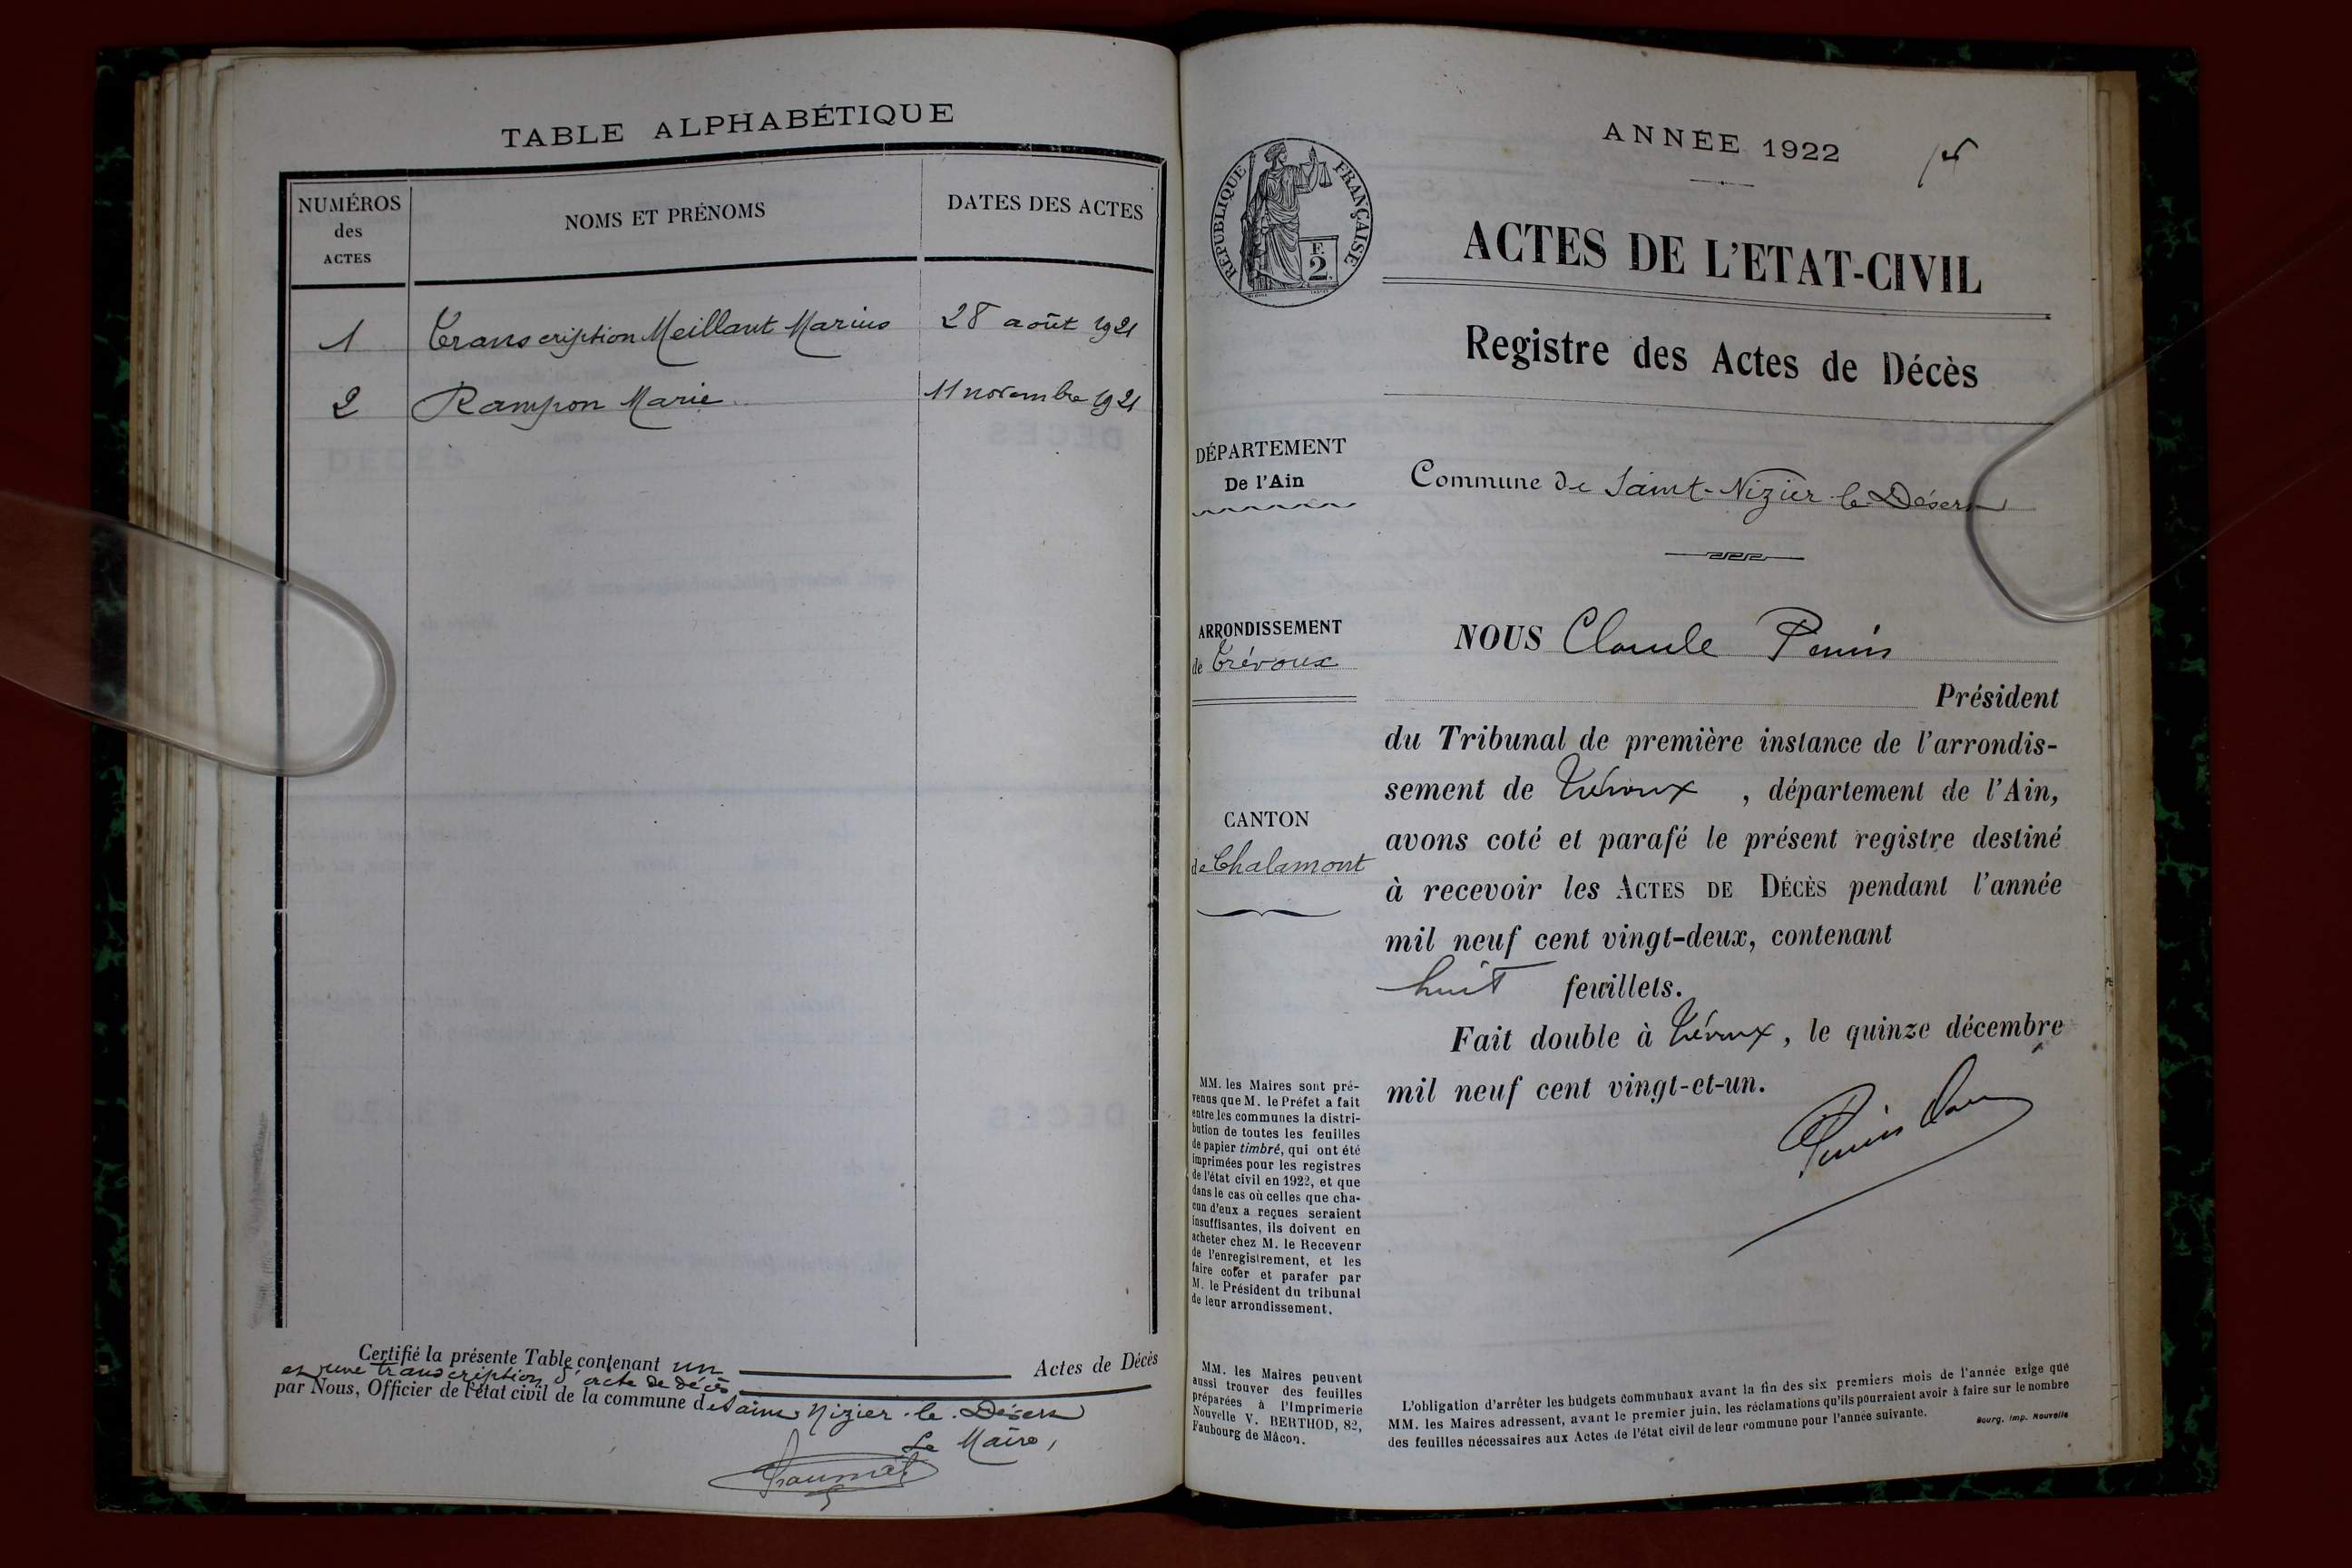 TABLE ALPHABÉTIQUE
NUMÉROS
des
ACTES
NOMS ET PRÉNOMS
DATES DES ACTES
1 Transcription Meillant Marius 28 août 1921
2 Rampon Marie 11 novembre 1921
Certifié la présente Table contenant un Actes de Décès
et une transcription d'acte de décès
par Nous, Officier de l'état civil de la commune de Saint Nizier-le-Désert
Le Maire,
ANNÉE 1922
RÉPUBLIQUE FRANÇAISE
F.
2
ACTES DE L'ETAT-CIVIL
Registre des Actes de Décès
DÉPARTEMENT
De l'Ain
Commune de Saint-Nizier-le-Désert
ARRONDISSEMENT
de Trévoux
CANTON
de Chalamont
NOUS Claude
Président
du Tribunal de première instance de l'arrondis-
sement de Trévoux, département de l'Ain,
avons coté et parafé le présent registre destiné
à recevoir les ACTES DE DÉCÈS pendant l'année
mil neuf cent vingt-deux, contenant
huit feuillets.
Fait double à Trévoux, le quinze décembre
mil neuf cent vingt-et-un.
MM. les Maires sont pré-
venus que M. le Préfet a fait
entre les communes la distri-
bution de toutes les feuilles
de papier timbré, qui ont été
imprimées pour les registres
de l'état civil en 1922, et que
dans le cas où celles que cha-
cun d'eux a reçues seraient
insuffisantes, ils doivent en
acheter chez M. le Receveur
de l'enregistrement, et les
faire coter et parafer par
M. le Président du tribunal
de leur arrondissement.
MM. les Maires peuvent
aussi trouver des feuilles
préparées à l'Imprimerie
Nouvelle V. BERTHOD, 82,
Faubourg de Mâcon.
L'obligation d'arrêter les budgets communaux avant la fin des six premiers mois de l'année exige que
MM. les Maires adressent, avant le premier juin, les réclamations qu'ils pourraient avoir à faire sur le nombre
des feuilles nécessaires aux Actes de l'état civil de leur commune pour l'année suivante.
Bourg, Imp. Nouvelle